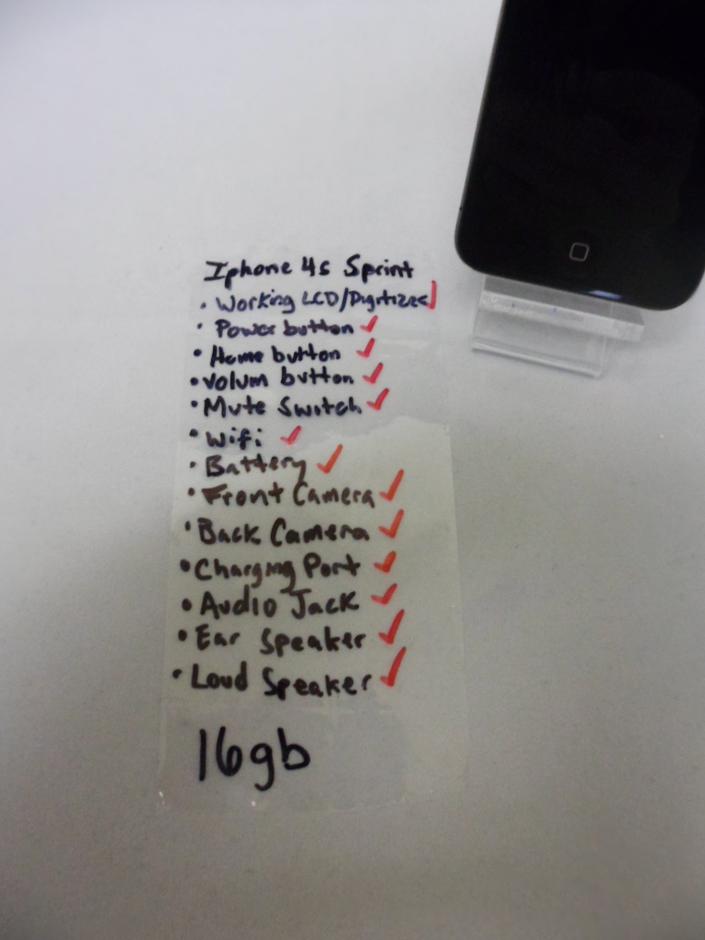 Iphone 4s Sprint
• Working LCD/Digitizer
• Power button ✓
• Home button ✓
• Volum button ✓
• Mute Switch ✓
• Wifi ✓
• Battery ✓
• Front Camera ✓
• Back Camera ✓
• Charging Port ✓
• Audio Jack ✓
• Ear Speaker ✓
• Loud Speaker ✓
16gb